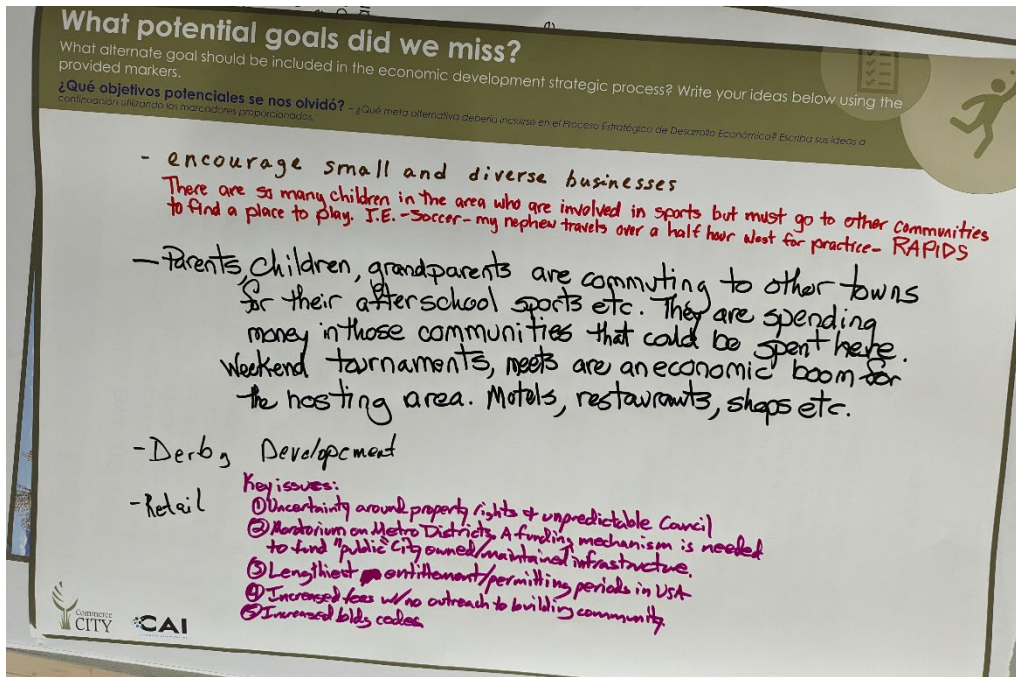 What potential goals did we miss?
What alternate goal should be included in the economic development strategic process? Write your ideas below using the
provided markers.
¿Qué objetivos potenciales se nos olvidó? – ¿Qué meta alternativa debería incluirse en el Proceso Estratégico de Desarrollo Económico? Escriba sus ideas a
continuación utilizando los marcadores proporcionados.
- encourage small and diverse businesses
There are so many children in the area who are involved in sports but must go to other communities
to find a place to play. I.E. - Soccer - my nephew travels over a half hour west for practice - RAPIDS
- Parents, Children, grandparents are commuting to other towns
for their afterschool sports etc. They are spending
money in those communities that could be spent here.
Weekend tournaments, meets are an economic boom for
the hosting area. Motels, restaurants, shops etc.
- Derby Development
- Retail
Key issues:
① Uncertainty around property rights & unpredictable Council
② Moratorium on Metro Districts. A funding mechanism is needed
to fund "public" City owned/maintained infrastructure.
③ Lengthiest entitlement/permitting periods in USA
④ Increased fees w/no outreach to building community.
⑤ Increased bldg codes
Commerce
CITY
CAI